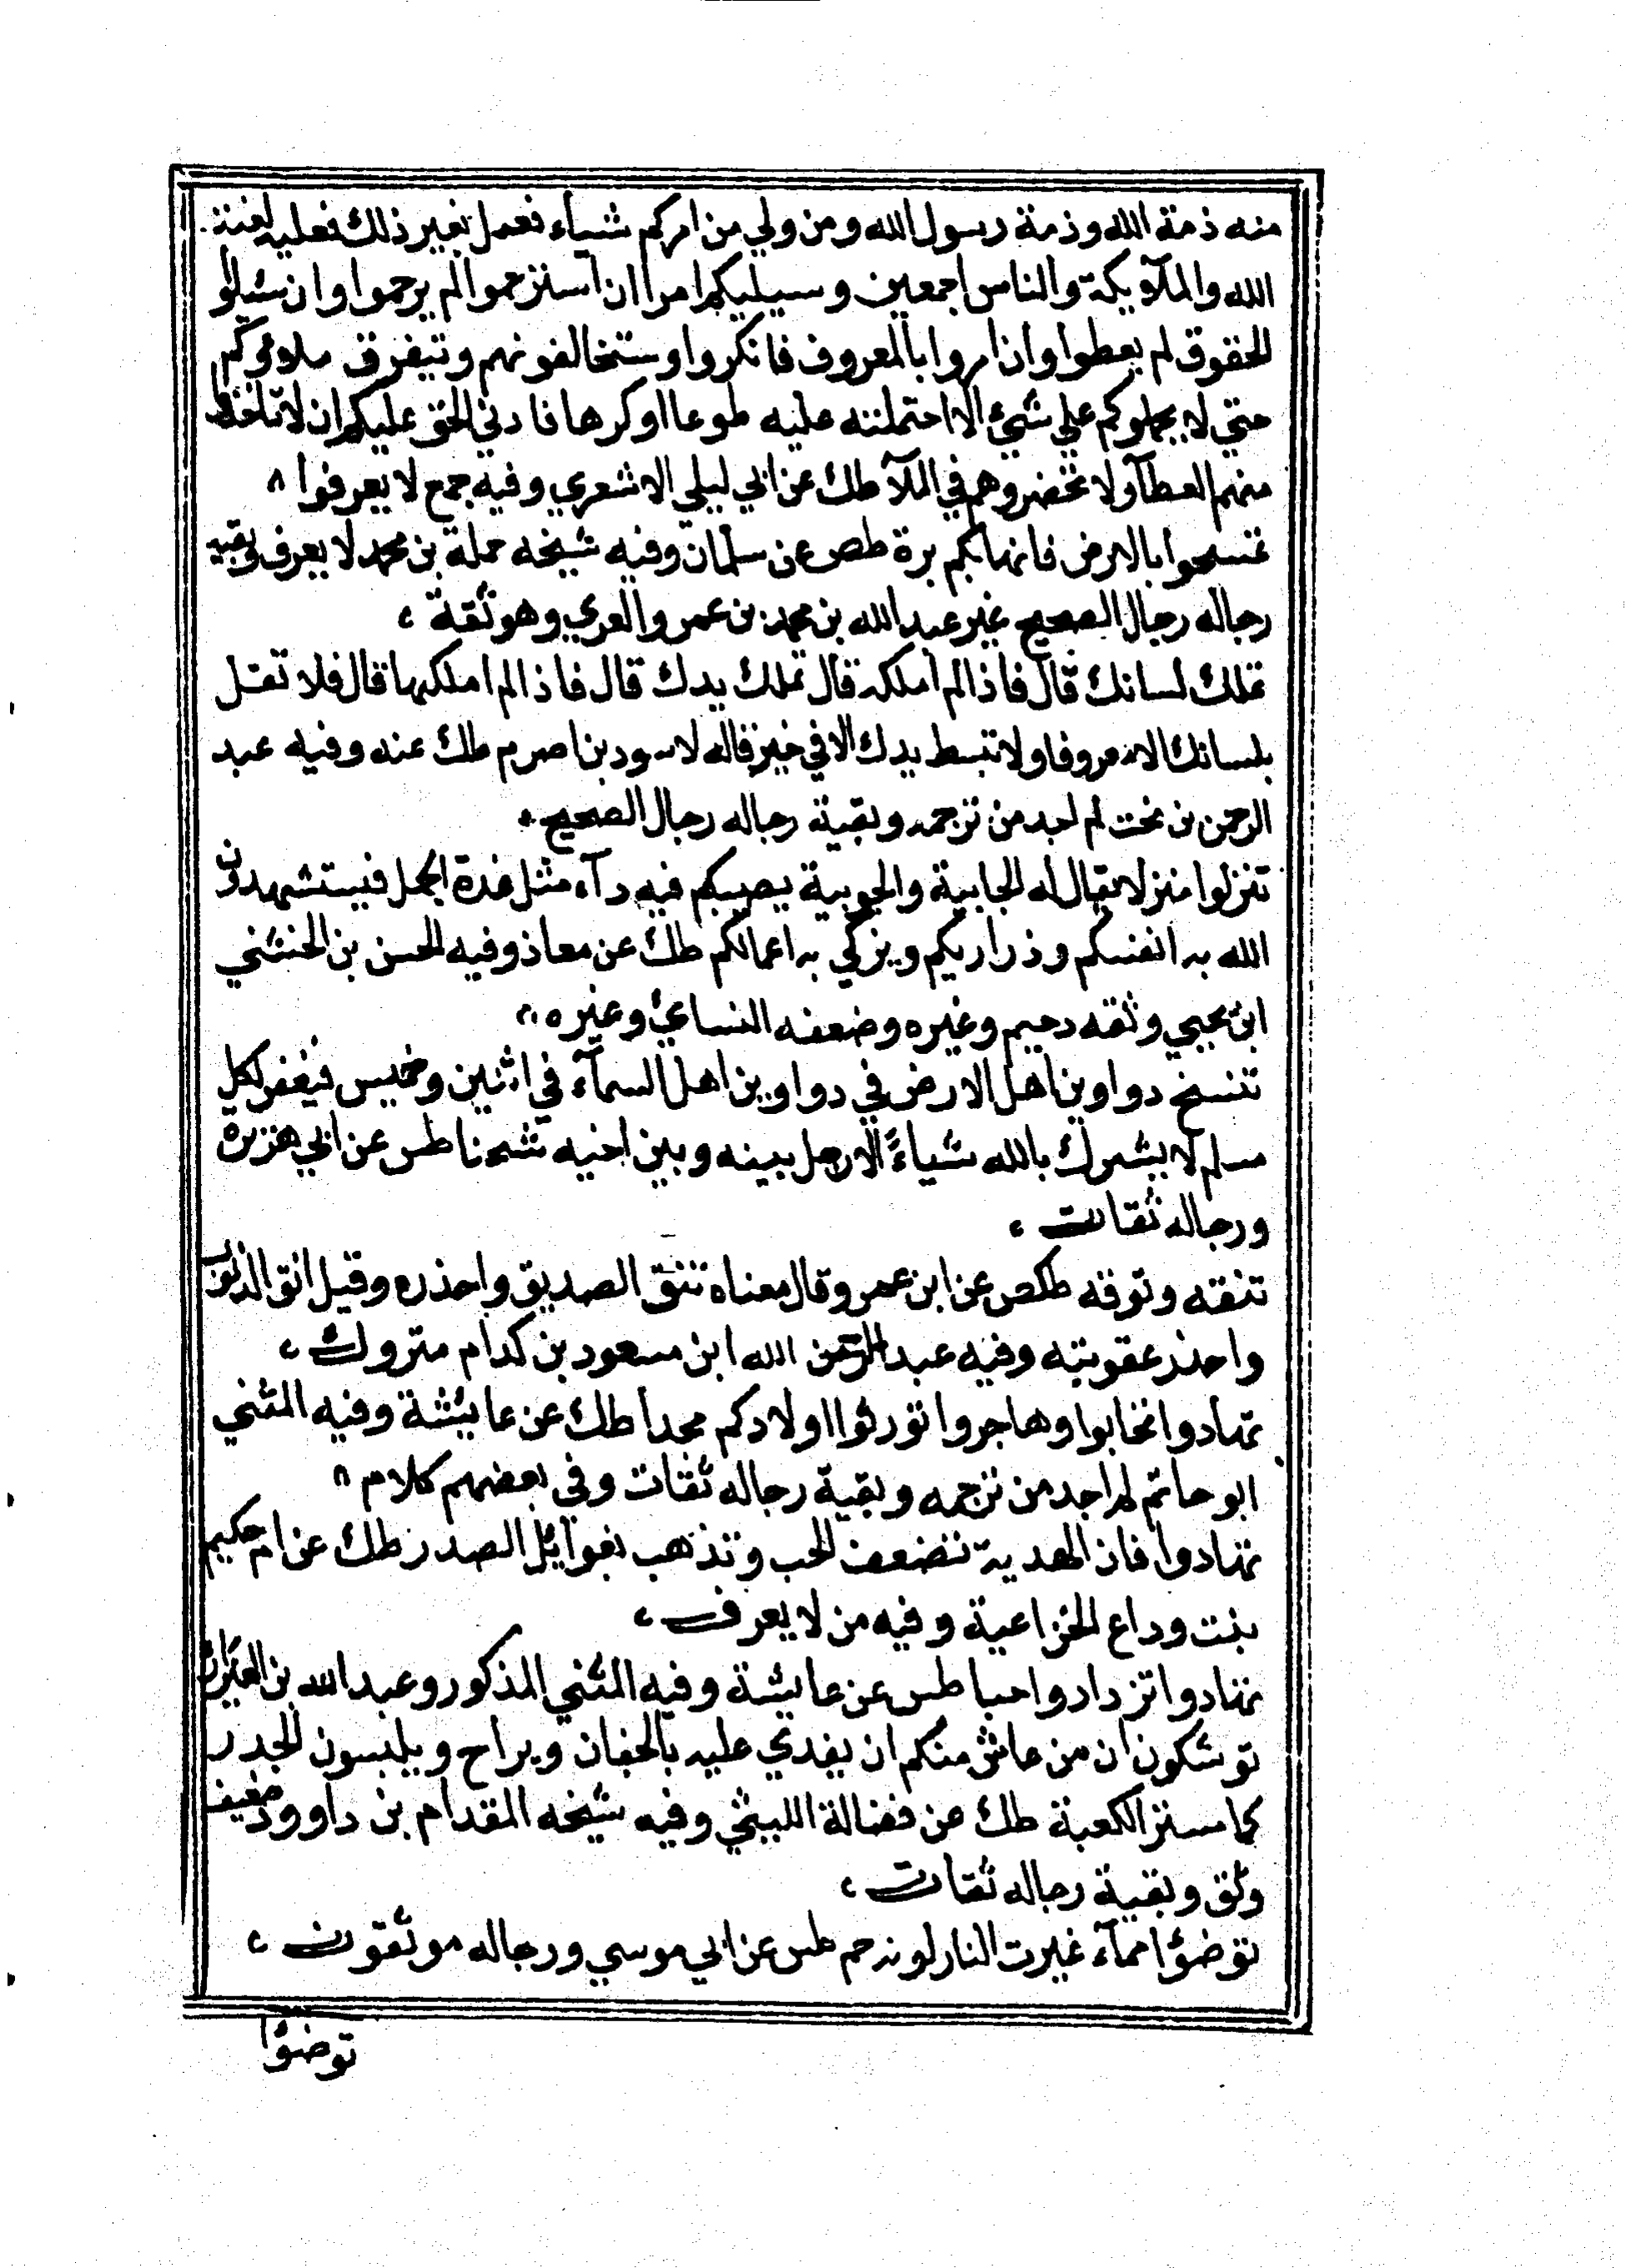 منه ذمة الله وذمة رسول الله ومن ولي من امركم شياء فعمل بغير ذلك فعليه لعنة
الله والملآئكة والناس اجمعين وسيليكم امراان استرحموا لم يرحموا وان سئيلو
الحقوق لم يعطوا وان امروا بالمعروف فانكروا وستخالفونهم وتيفرق ملاؤكم
حتي لا يحملوكم علي شيئ الا احتملتنه عليه طوعا اوكرها فادني الحق عليكم ان لا تاخذوا
منهم العطآ ولا تحضروهم في الملآ طك عن ابي ليلي الاشعري وفيه جمع لا يعرفوا
تمسحوا بالارض فانها بكم برة طص عن سلمان وفيه شيخه حملة بن محمد لا يعرف وبقية
رجاله رجال الصحيح غير عبد الله بن محمد بن عمرو العري وهو ثقة
تملك لسانك قال فاذا لم املكه قال تملك يدك قال فاذا لم املكها قال فلا تقل
بلسانك الا معروفا ولا تبسط يدك الا في خير قاله لاسود بن اصرم طك عنه وفيه عبد
الرحمن بن نخت لم اجد من ترجمه وبقية رجاله رجال الصحيح
تنزلوا منزلا يقال له الجابية والجويية يصيبكم فيه دآء مثل غدة الجمل فيستشهدون
الله به انفسكم وذراريكم ويزكي به اعمالكم طك عن معاذ وفيه الحسن بن الخشني
ابن يحيي وثقه دحيم وغيره وضعفه النساءي وغيره
تنسخ دواوين اهل الارض في دواوين اهل السمآء في اثنين وخميس فيغفر لكل
مسلم لا يشرك بالله شياءً الا رجل بينه وبين اخيه شحنا طس عن ابي هزيرة
ورجاله ثقات
تنقه وتوقه طكص عن ابن عمر وقال معناه تنق الصديق واحذره وقيل اتق الذنوب
واحذر عقوبته وفيه عبد الرحمن الله ابن مسعود بن كدام متروك
تهادوا تخابوا وهاجروا تورثوا اولادكم مجدا طك عن عايشة وفيه المثني
ابو حاتم لم اجد من ترجمه وبقية رجاله ثقات وفي بعضهم كلام
تهادوا فان الهدية تضعف الحب وتذهب بغوآئل الصدر طك عن ام حكيم
بنت وداع الخزاعية وفيه من لا يعرف
تهادوا تزدادوا حبا طس عن عايشة وفيه المثني المذكور وعبد الله بن العيزان
توشكون ان من عاش منكم ان يغدي عليه بالجفان ويراح ويلبسون الجدر
كما ستر الكعبة طك عن فضالة الليثي وفيه شيخه المقدام بن داوود ضعيف
وثق وبقية رجاله ثقات
توضؤا ممآء غيرت النار لونه حم طس عن ابي موسي ورجاله موثقون
توضؤا